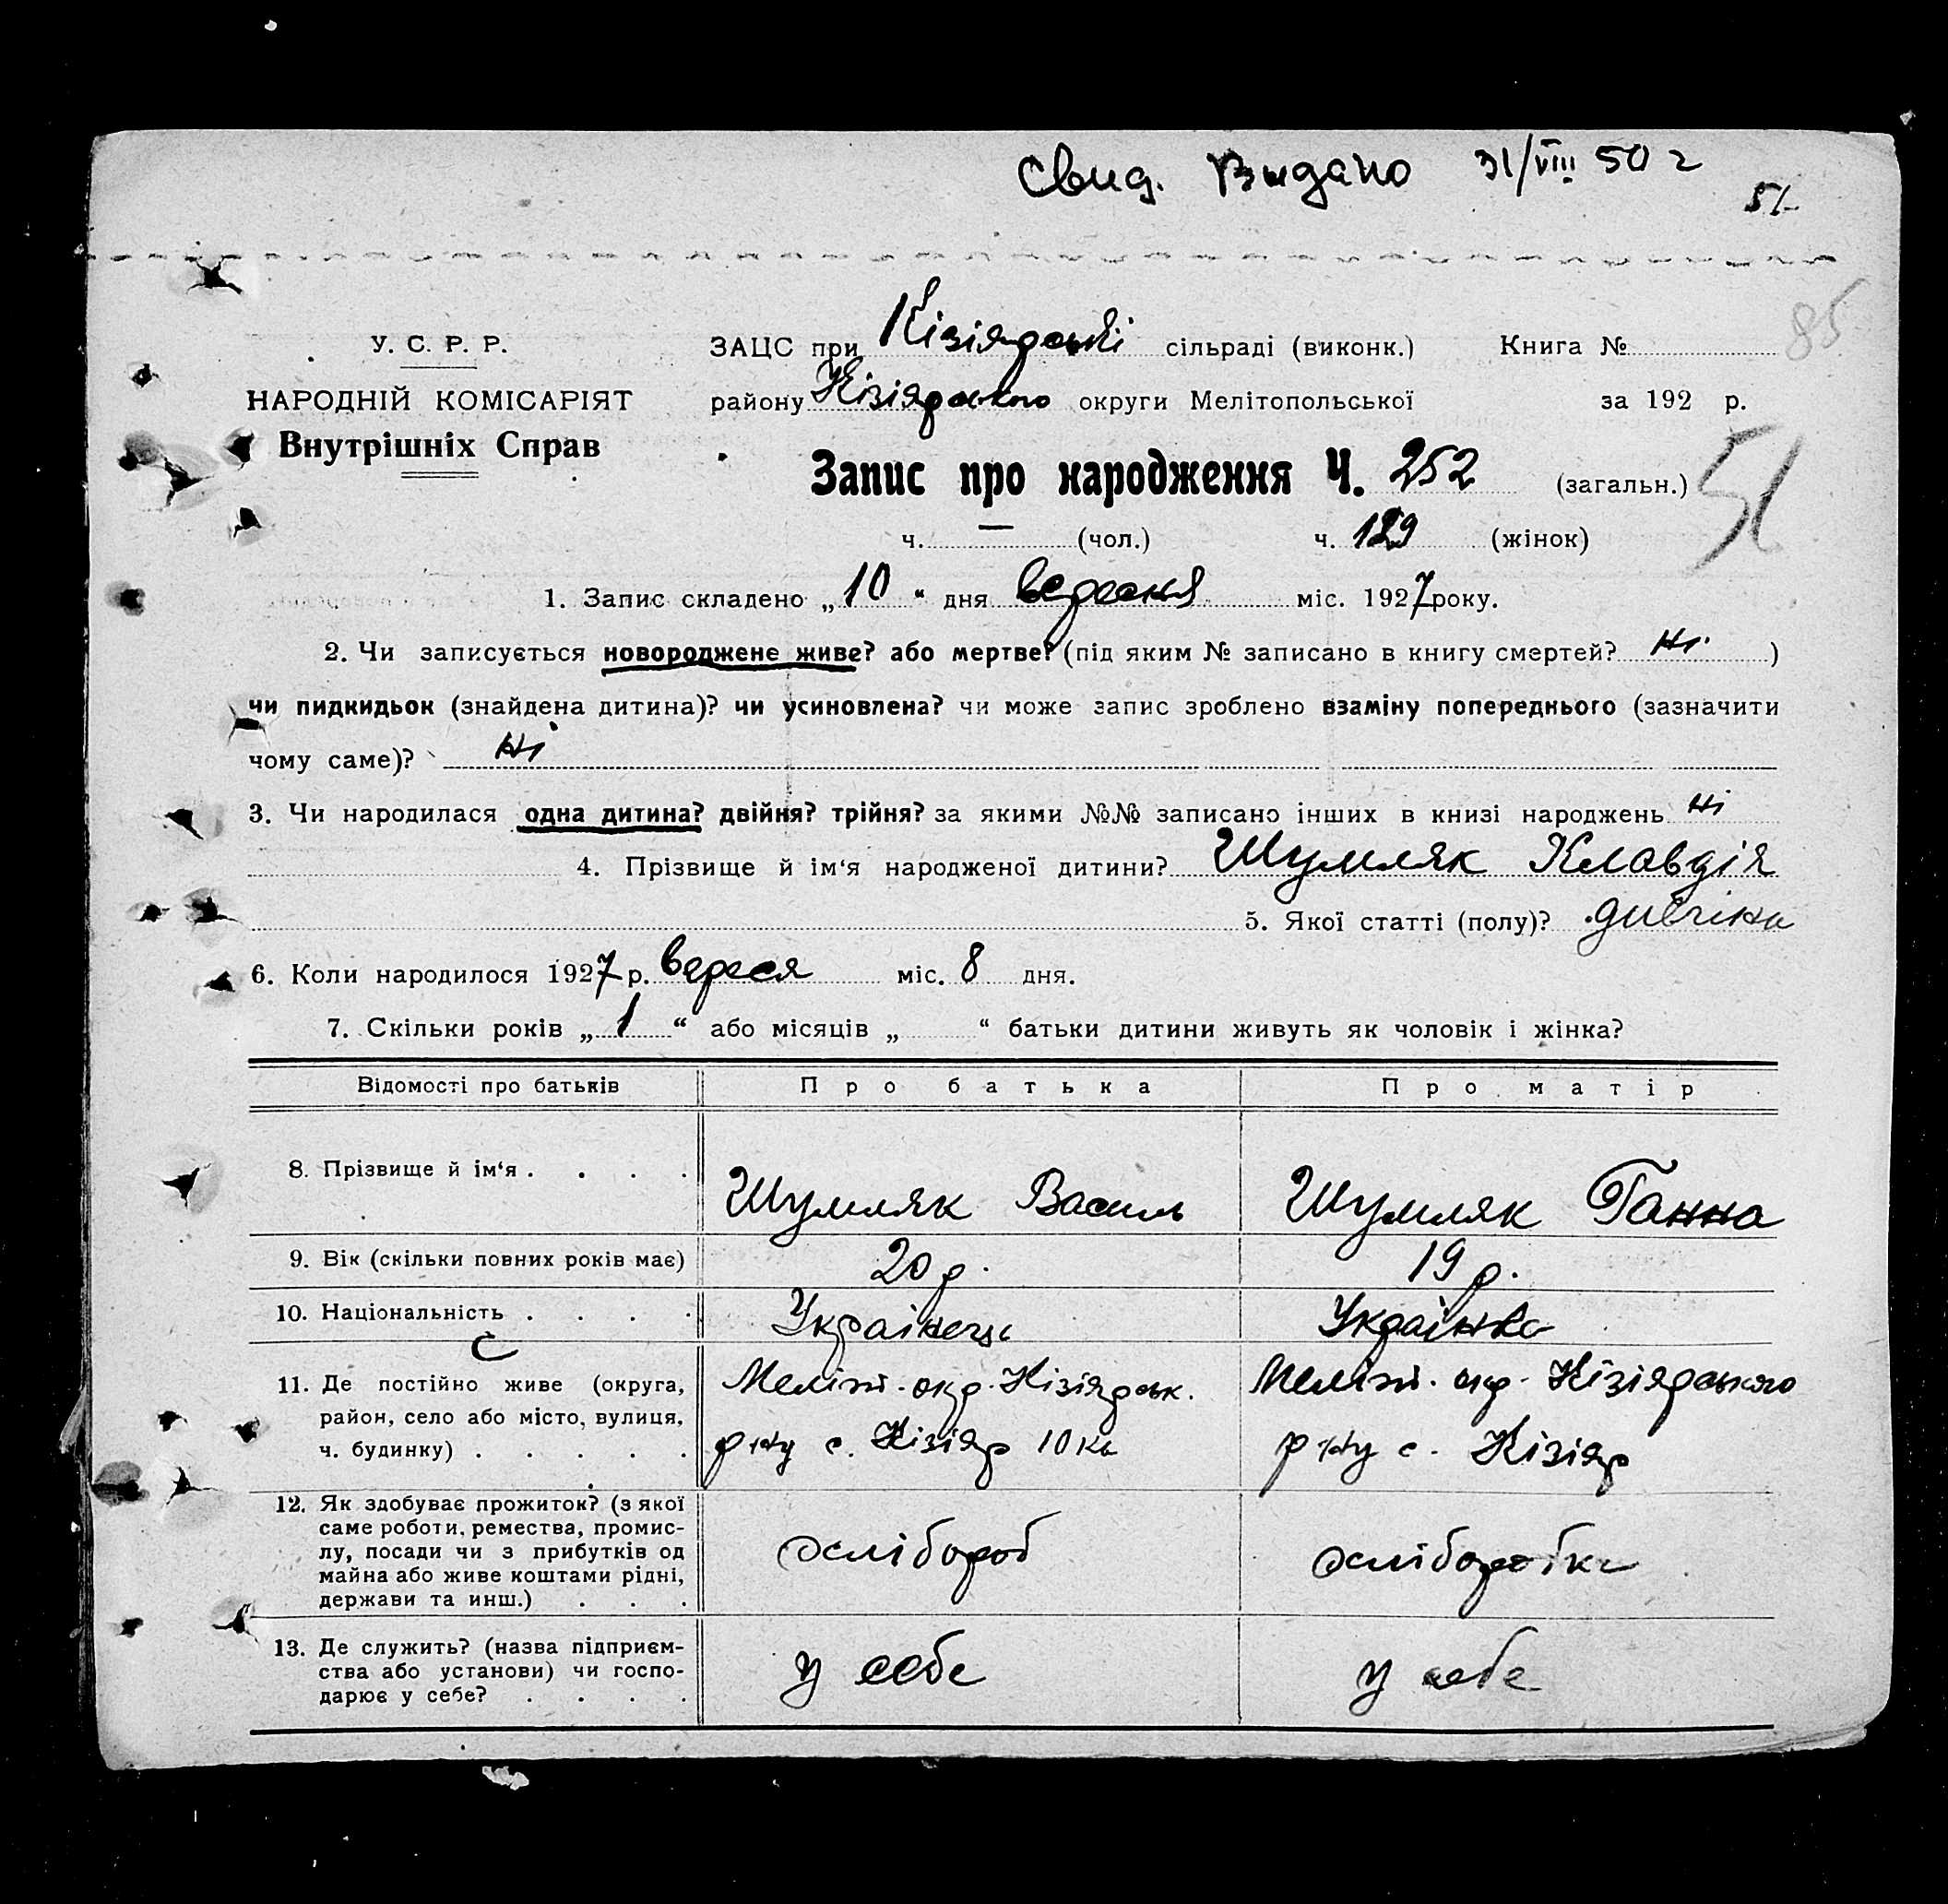 Свид. Выдано 31/VIII 50 г
51
85
У. С. Р. Р.
ЗАЦС при Кізіярській сільраді (виконк.) Книга №
НАРОДНІЙ КОМІСАРІЯТ
району Кізіярського округи Мелітопольської за 192 р.
Внутрішніх Справ
Запис про народження Ч. 252 (загальн.)
51
ч. — (чол.) ч. 129 (жінок)
1. Запис складено „10“ дня вересня міс. 1927 року.
2. Чи записується новороджене живе? або мертве? (під яким № записано в книгу смертей? Ні )
чи пидкидьок (знайдена дитина)? чи усиновлена? чи може запис зроблено взаміну попереднього (зазначити
чому саме)? Ні
3. Чи народилася одна дитина? двійня? трійня? за якими №№ записано інших в книзі народжень Ні
4. Прізвище й ім‘я народженої дитини? Шумляк Клавдія
5. Якої статті (полу)? дивчина
6. Коли народилося 1927 р. вереся міс. 8 дня.
7. Скільки років „1“ або місяців „ “ батьки дитини живуть як чоловік і жінка?
Відомості про батьків Про батька Про матір
8. Прізвище й ім‘я . . . . Шумляк Василь Шумляк Ганна
9. Вік (скільки повних років має) 20 р. 19 р.
10. Національність . . . . Українець Українка
11. Де постійно живе (округа, Меліт. окр. Кізіярськ. Меліт. окр. Кізіярського
район, село або місто, вулиця,
ч. будинку) . . . . . р-ну с. Кізіяр р-ну с. Кізіяр
12. Як здобуває прожиток? (з якої
саме роботи, ремества, промис-
лу, посади чи з прибутків од хлібороб хлоборобка
майна або живе коштами рідні,
держави та инш.) . . .
13. Де служить? (назва підприєм-
ства або установи) чи госпо- у себе у себе
дарює у себе? . . . .